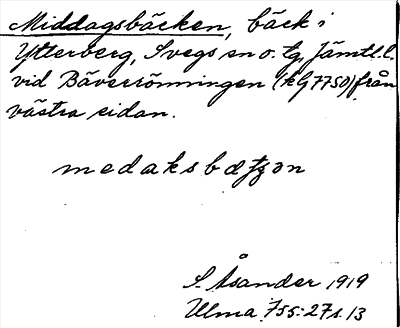 Middagsbäcken, bäck i
Ytterberg, Svegs sn o. tg, Jämtl. l.
vid Bäverrönningen (k G7750) från
västra sidan.
medaksbætʒən
S. Åsander 1919
Ulma 755:27 s. 13